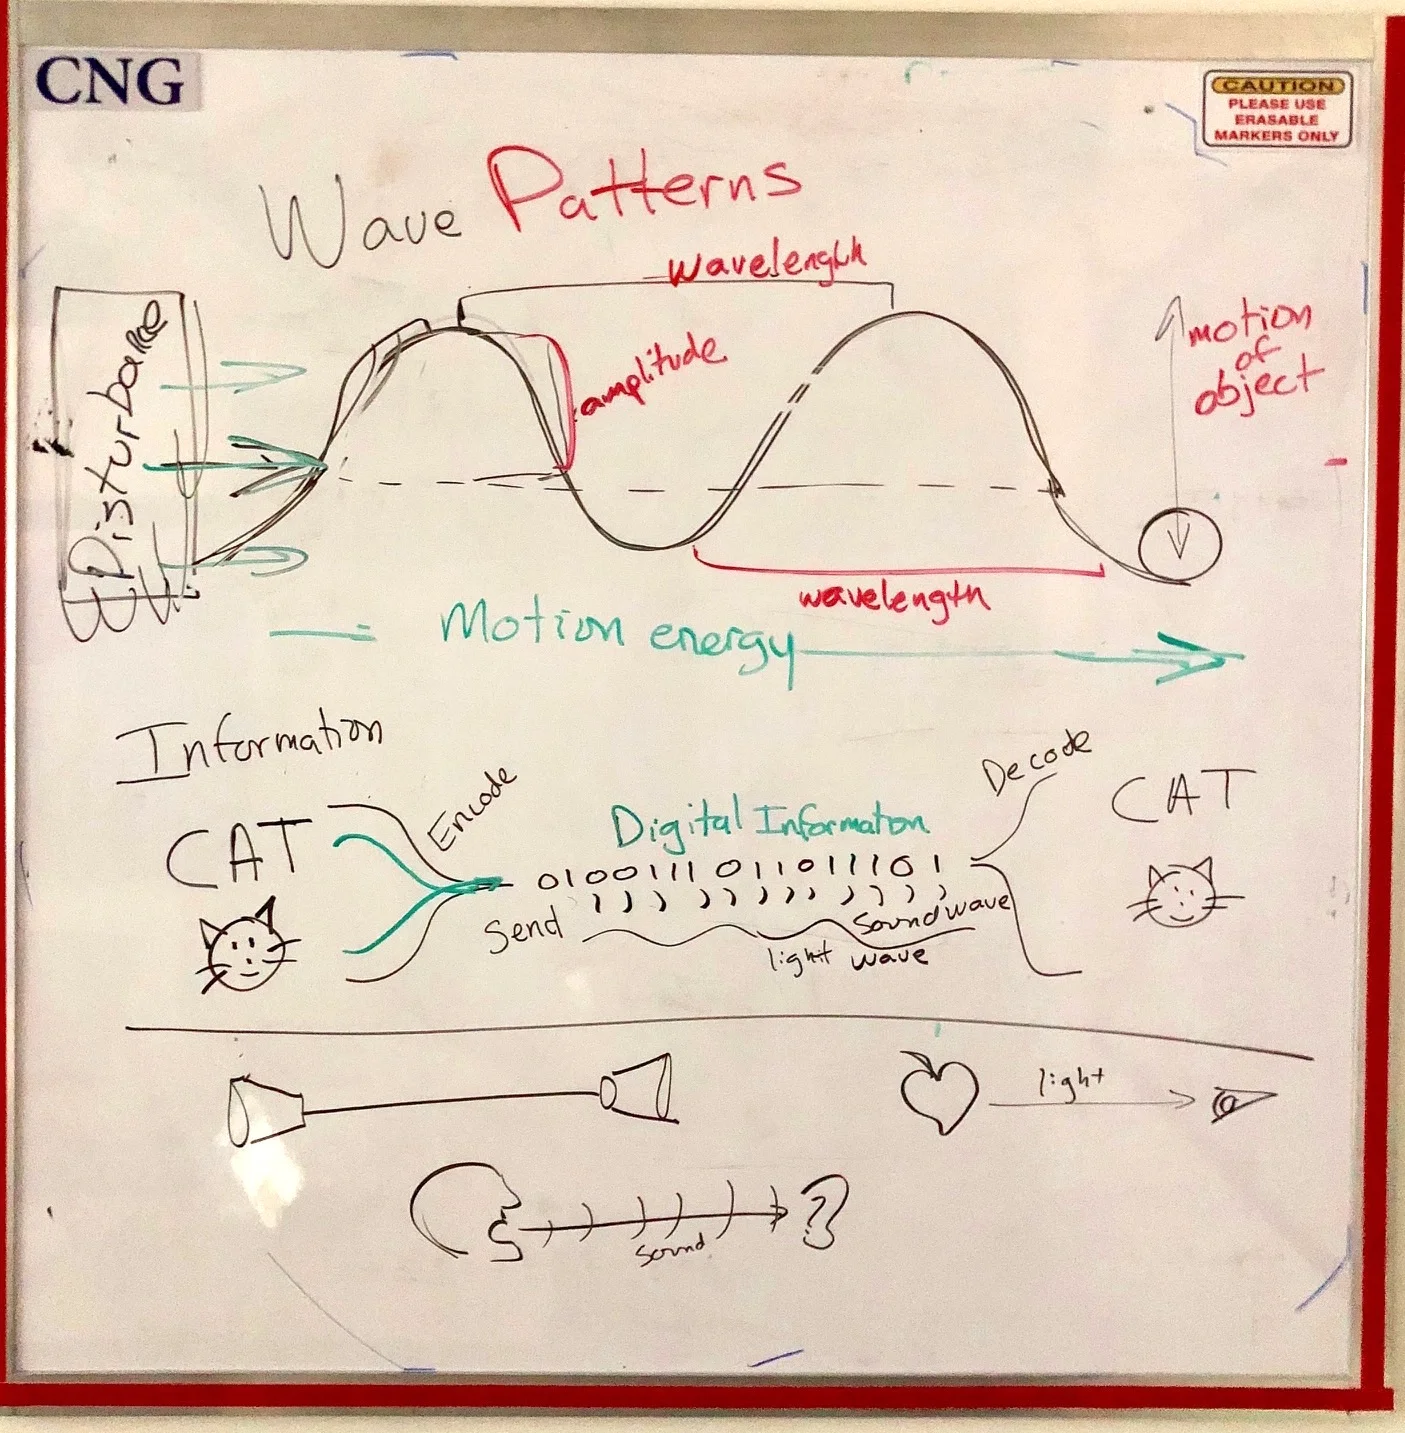 CNG
CAUTION
PLEASE USE
ERASABLE
MARKERS ONLY
Wave Patterns
wavelength
Disturbance
amplitude
motion
of
object
wavelength
Motion energy
Information
Encode
Decode
CAT
CAT
Digital Information
0100111011011101
Send
Soundwave
light wave
light
Sound